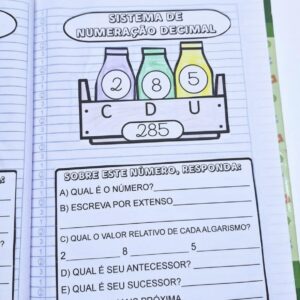 SISTEMA DE
NUMERAÇÃO DECIMAL
2 8 5
C D U
285
SOBRE ESTE NÚMERO, RESPONDA:
A) QUAL É O NÚMERO?
B) ESCREVA POR EXTENSO
C) QUAL O VALOR RELATIVO DE CADA ALGARISMO?
2 8 5
D) QUAL É SEU ANTECESSOR?
E) QUAL É SEU SUCESSOR?
PRÓXIMA